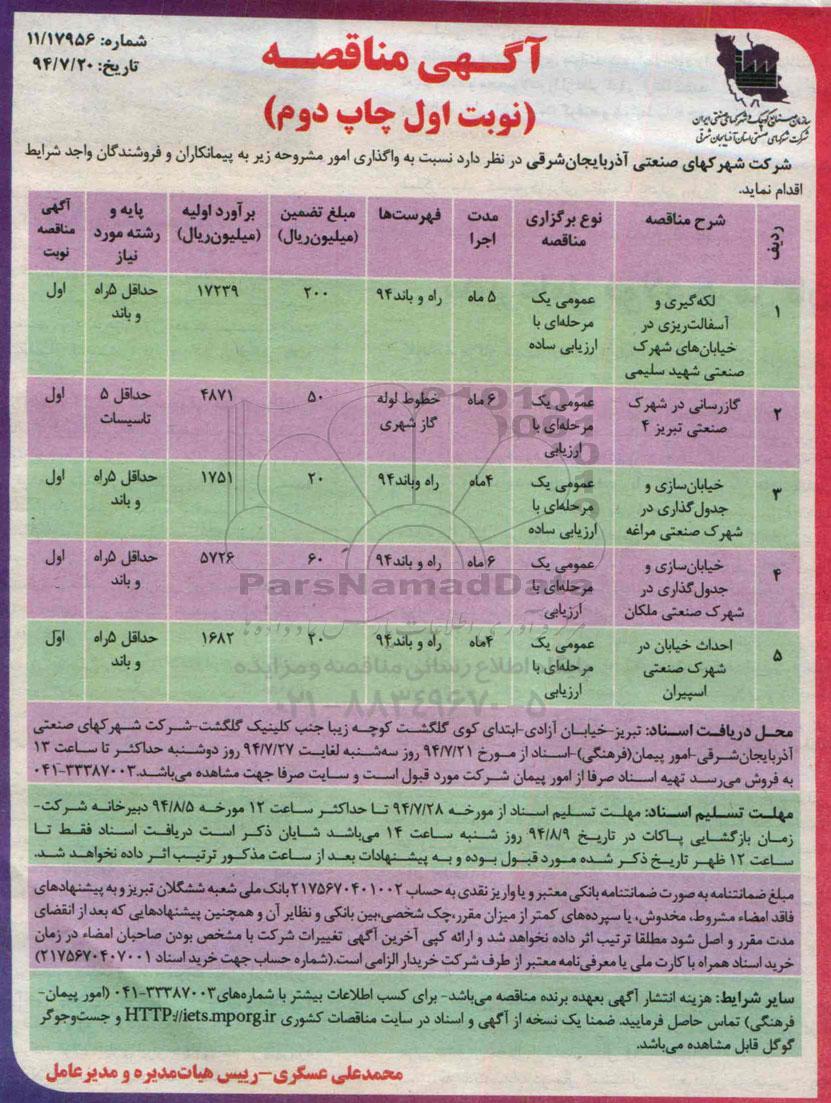 شماره: ۱۱/۱۷۹۵۶
تاریخ: ۹۴/۷/۲۰
آگهی مناقصه
(نوبت اول چاپ دوم)
سازمان صنایع کوچک و شهرکهای صنعتی ایران
شرکت شهرکهای صنعتی استان آذربایجان شرقی
شرکت شهرکهای صنعتی آذربایجان‌شرقی در نظر دارد نسبت به واگذاری امور مشروحه زیر به پیمانکاران و فروشندگان واجد شرایط
اقدام نماید.
ردیف | شرح مناقصه | نوع برگزاری مناقصه | مدت اجرا | فهرست‌ها | مبلغ تضمین (میلیون‌ریال) | برآورد اولیه (میلیون‌ریال) | پایه و رشته مورد نیاز | آگهی مناقصه نوبت
۱ | لکه‌گیری و آسفالت‌ریزی در خیابان‌های شهرک صنعتی شهید سلیمی | عمومی یک مرحله‌ای با ارزیابی ساده | ۵ ماه | راه و باند۹۴ | ۲۰۰ | ۱۷۲۳۹ | حداقل ۵راه و باند | اول
۲ | گازرسانی در شهرک صنعتی تبریز ۴ | عمومی یک مرحله‌ای با ارزیابی | ۶ ماه | خطوط لوله گاز شهری | ۵۰ | ۴۸۷۱ | حداقل ۵ تاسیسات | اول
۳ | خیابان‌سازی و جدول‌گذاری در شهرک صنعتی مراغه | عمومی یک مرحله‌ای با ارزیابی ساده | ۴ماه | راه وباند۹۴ | ۲۰ | ۱۷۵۱ | حداقل ۵راه و باند | اول
۴ | خیابان‌سازی و جدول‌گذاری در شهرک صنعتی ملکان | عمومی یک مرحله‌ای با ارزیابی | ۶ ماه | راه و باند۹۴ | ۶۰ | ۵۷۲۶ | حداقل ۵راه و باند | اول
۵ | احداث خیابان در شهرک صنعتی اسپیران | عمومی یک مرحله‌ای با ارزیابی | ۴ماه | راه و باند۹۴ | ۲۰ | ۱۶۸۲ | حداقل ۵راه و باند | اول
ParsNamadData
پایگاه اطلاع رسانی مناقصه و مزایده
۰۲۱-۸۸۳۴۹۶۷۰-۵
محل دریافت اسناد: تبریز-خیابان آزادی-ابتدای کوی گلگشت کوچه زیبا جنب کلینیک گلگشت-شرکت شهرکهای صنعتی
آذربایجان‌شرقی-امور پیمان(فرهنگی)-اسناد از مورخ ۹۴/۷/۲۱ روز سه‌شنبه لغایت ۹۴/۷/۲۷ روز دوشنبه حداکثر تا ساعت ۱۳
به فروش می‌رسد تهیه اسناد صرفا از امور پیمان شرکت مورد قبول است و سایت صرفا جهت مشاهده می‌باشد.۳۳۳۸۷۰۰۳-۰۴۱
مهلت تسلیم اسناد: مهلت تسلیم اسناد از مورخه ۹۴/۷/۲۸ تا حداکثر ساعت ۱۲ مورخه ۹۴/۸/۵ دبیرخانه شرکت-
زمان بازگشایی پاکات در تاریخ ۹۴/۸/۹ روز شنبه ساعت ۱۴ می‌باشد شایان ذکر است دریافت اسناد فقط تا
ساعت ۱۲ ظهر تاریخ ذکر شده مورد قبول بوده و به پیشنهادات بعد از ساعت مذکور ترتیب اثر داده نخواهد شد.
مبلغ ضمانتنامه به صورت ضمانتنامه بانکی معتبر و یا واریز نقدی به حساب ۲۱۷۵۶۷۰۴۰۱۰۰۲ بانک ملی شعبه ششگلان تبریز و به پیشنهادهای
فاقد امضاء مشروط، مخدوش، یا سپرده‌های کمتر از میزان مقرر،چک شخصی،بین بانکی و نظایر آن و همچنین پیشنهادهایی که بعد از انقضای
مدت مقرر و اصل شود مطلقا ترتیب اثر داده نخواهد شد و ارائه کپی آخرین آگهی تغییرات شرکت با مشخص بودن صاحبان امضاء در زمان
خرید اسناد همراه با کارت ملی یا معرفی‌نامه معتبر از طرف شرکت خریدار الزامی است.(شماره حساب جهت خرید اسناد ۲۱۷۵۶۷۰۴۰۷۰۰۱)
سایر شرایط: هزینه انتشار آگهی بعهده برنده مناقصه می‌باشد- برای کسب اطلاعات بیشتر با شماره‌های۳۳۳۸۷۰۰۳-۰۴۱ (امور پیمان-
فرهنگی) تماس حاصل فرمایید. ضمنا یک نسخه از آگهی و اسناد در سایت مناقصات کشوری HTTP://iets.mporg.ir و جست‌وجوگر
گوگل قابل مشاهده می‌باشد.
محمدعلی عسگری-رییس هیات‌مدیره و مدیرعامل